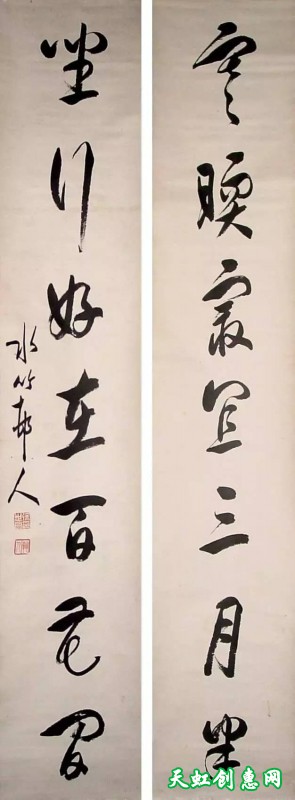 寒暖最宜三月半
坐行好在百花間
水竹邨人
天虹创惠网